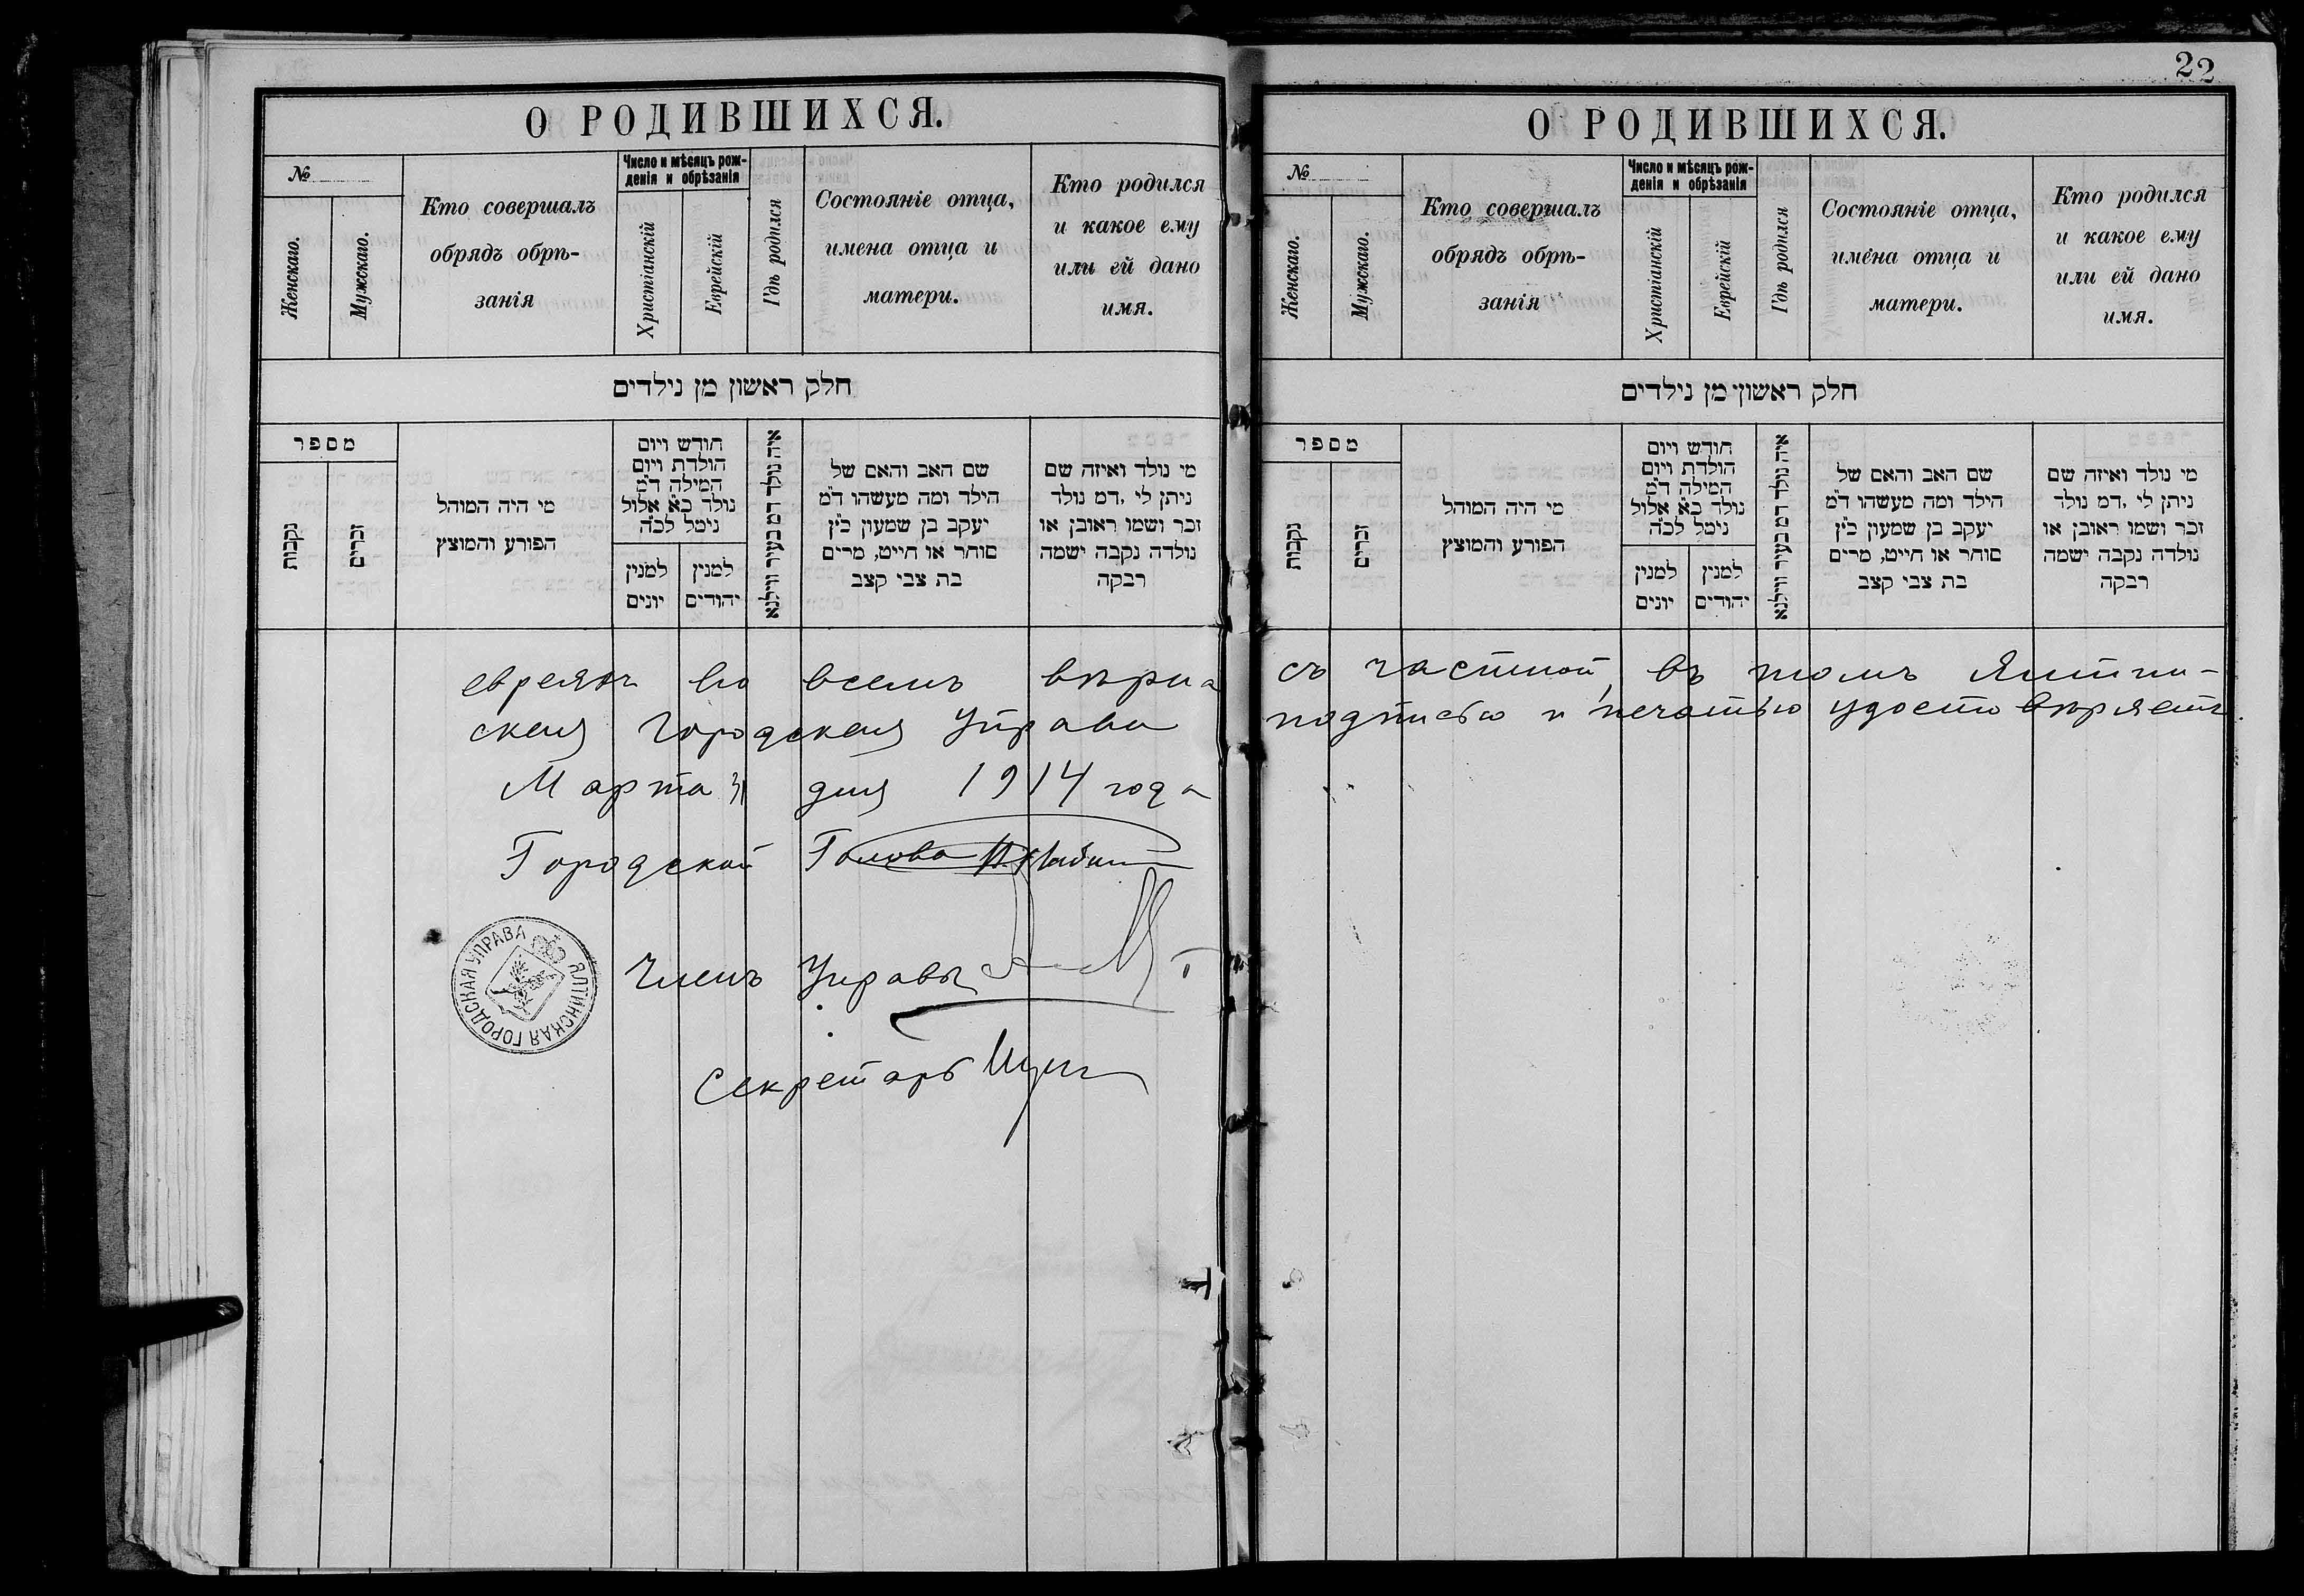 22
О РОДИВШИХСЯ.
№
Женскаго.
Мужскаго.
Кто совершалъ
обрядъ обрѣ-
занія
Число и мѣсяцъ рож-
денія и обрѣзанія
Христіанскій
Еврейскій
Гдѣ родился
Состояніе отца,
имена отца и
матери.
Кто родился
и какое ему
или ей дано
имя.
חלק ראשון מן נילדים
מספר
נקבות
זכרים
מי היה המוהל
הפורע והמוצץ
חודש ויום
הולדת ויום
המילה ד"מ
נולד כ"א אלול
נימל לכ"ה
למנין
יונים
למנין
יהודים
איה נולד דמ בעיר ווילנא
שם האב והאם של
הילד ומה מעשהו ד"מ
יעקב בן שמעון כ"ץ
סוחר או חייט, מרים
בת צבי קצב
מי נולד ואיזה שם
ניתן לי ,דמ נולד
זכר ושמו ראובן או
נולדה נקבה ישמה
רבקה
О РОДИВШИХСЯ.
№
Женскаго.
Мужскаго.
Кто совершалъ
обрядъ обрѣ-
занія
Число и мѣсяцъ рож-
денія и обрѣзанія
Христіанскій
Еврейскій
Гдѣ родился
Состояніе отца,
имена отца и
матери.
Кто родился
и какое ему
или ей дано
имя.
חלק ראשון מן נילדים
מספר
נקבות
זכרים
מי היה המוהל
הפורע והמוצץ
חודש ויום
הולדת ויום
המילה ד"מ
נולד כ"א אלול
נימל לכ"ה
למנין
יונים
למנין
יהודים
איה נולד דמ בעיר ווילנא
שם האב והאם של
הילד ומה מעשהו ד"מ
יעקב בן שמעון כ"ץ
סוחר או חייט, מרים
בת צבי קצב
מי נולד ואיזה שם
ניתן לי ,דמ נולד
זכר ושמו ראובן או
נולדה נקבה ישמה
רבקה
евреяхъ во всемъ вѣрна съ частной, въ томъ Ялтин-
ская Городская Управа подписью и печатью удостовѣряетъ.
Марта 31 дня 1914 года
Городской Голова
Членъ Управы
Секретарь
ЯЛТИНСКАЯ ГОРОДСКАЯ УПРАВА